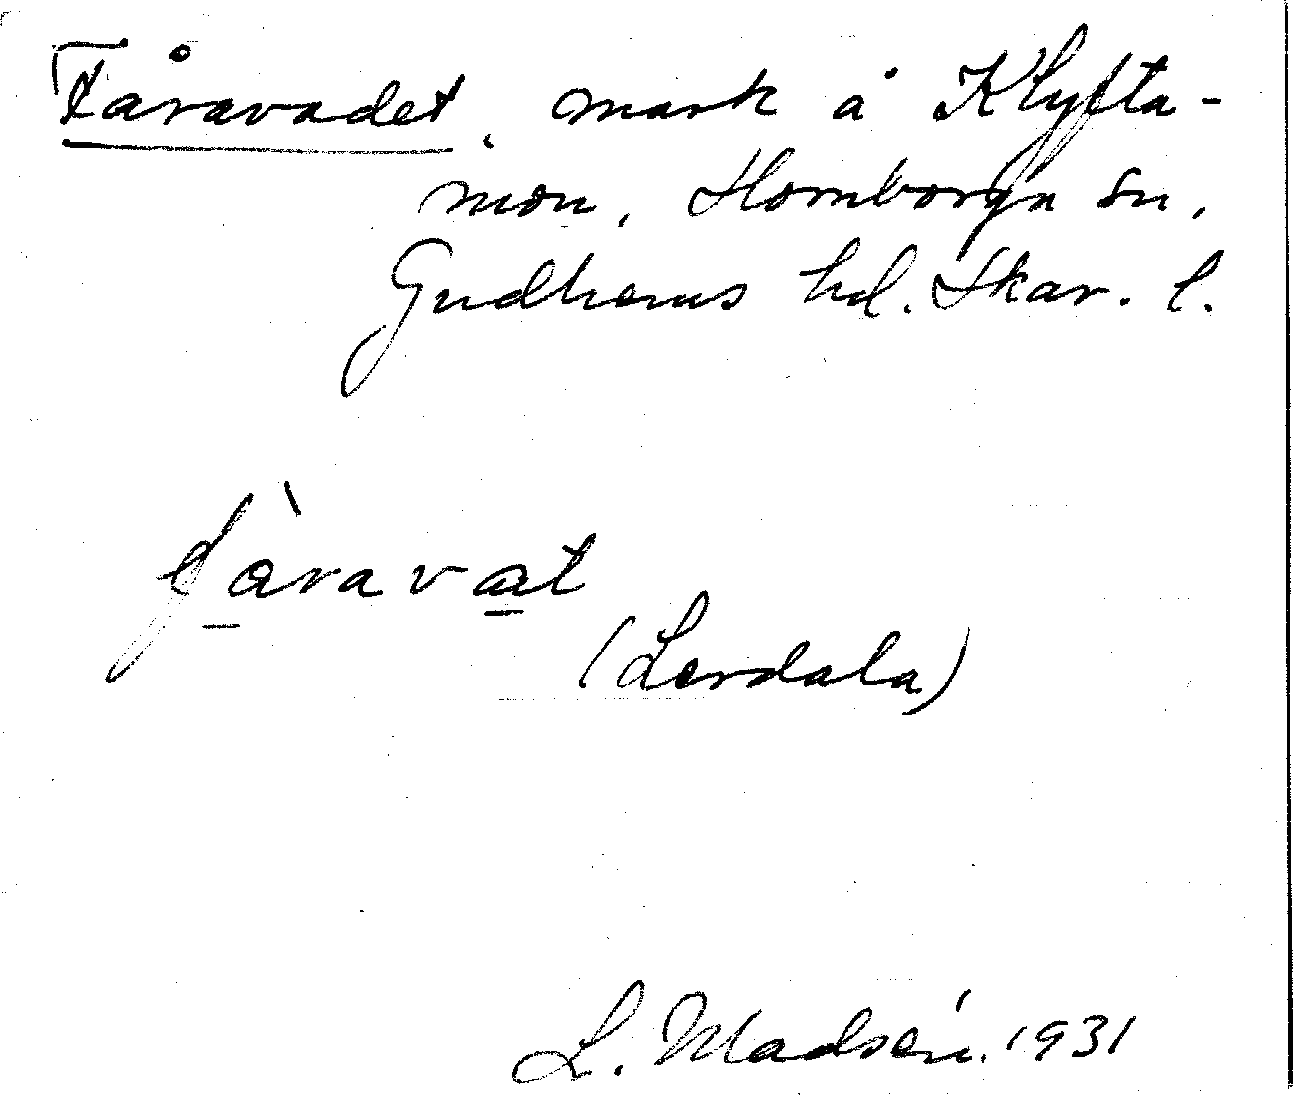 Fåravadet, mark å Klyfta-
mon, Hornborga sn,
Gudhems hd. Skar. l.
fàravat
(Lerdala)
L. Madsén. 1931